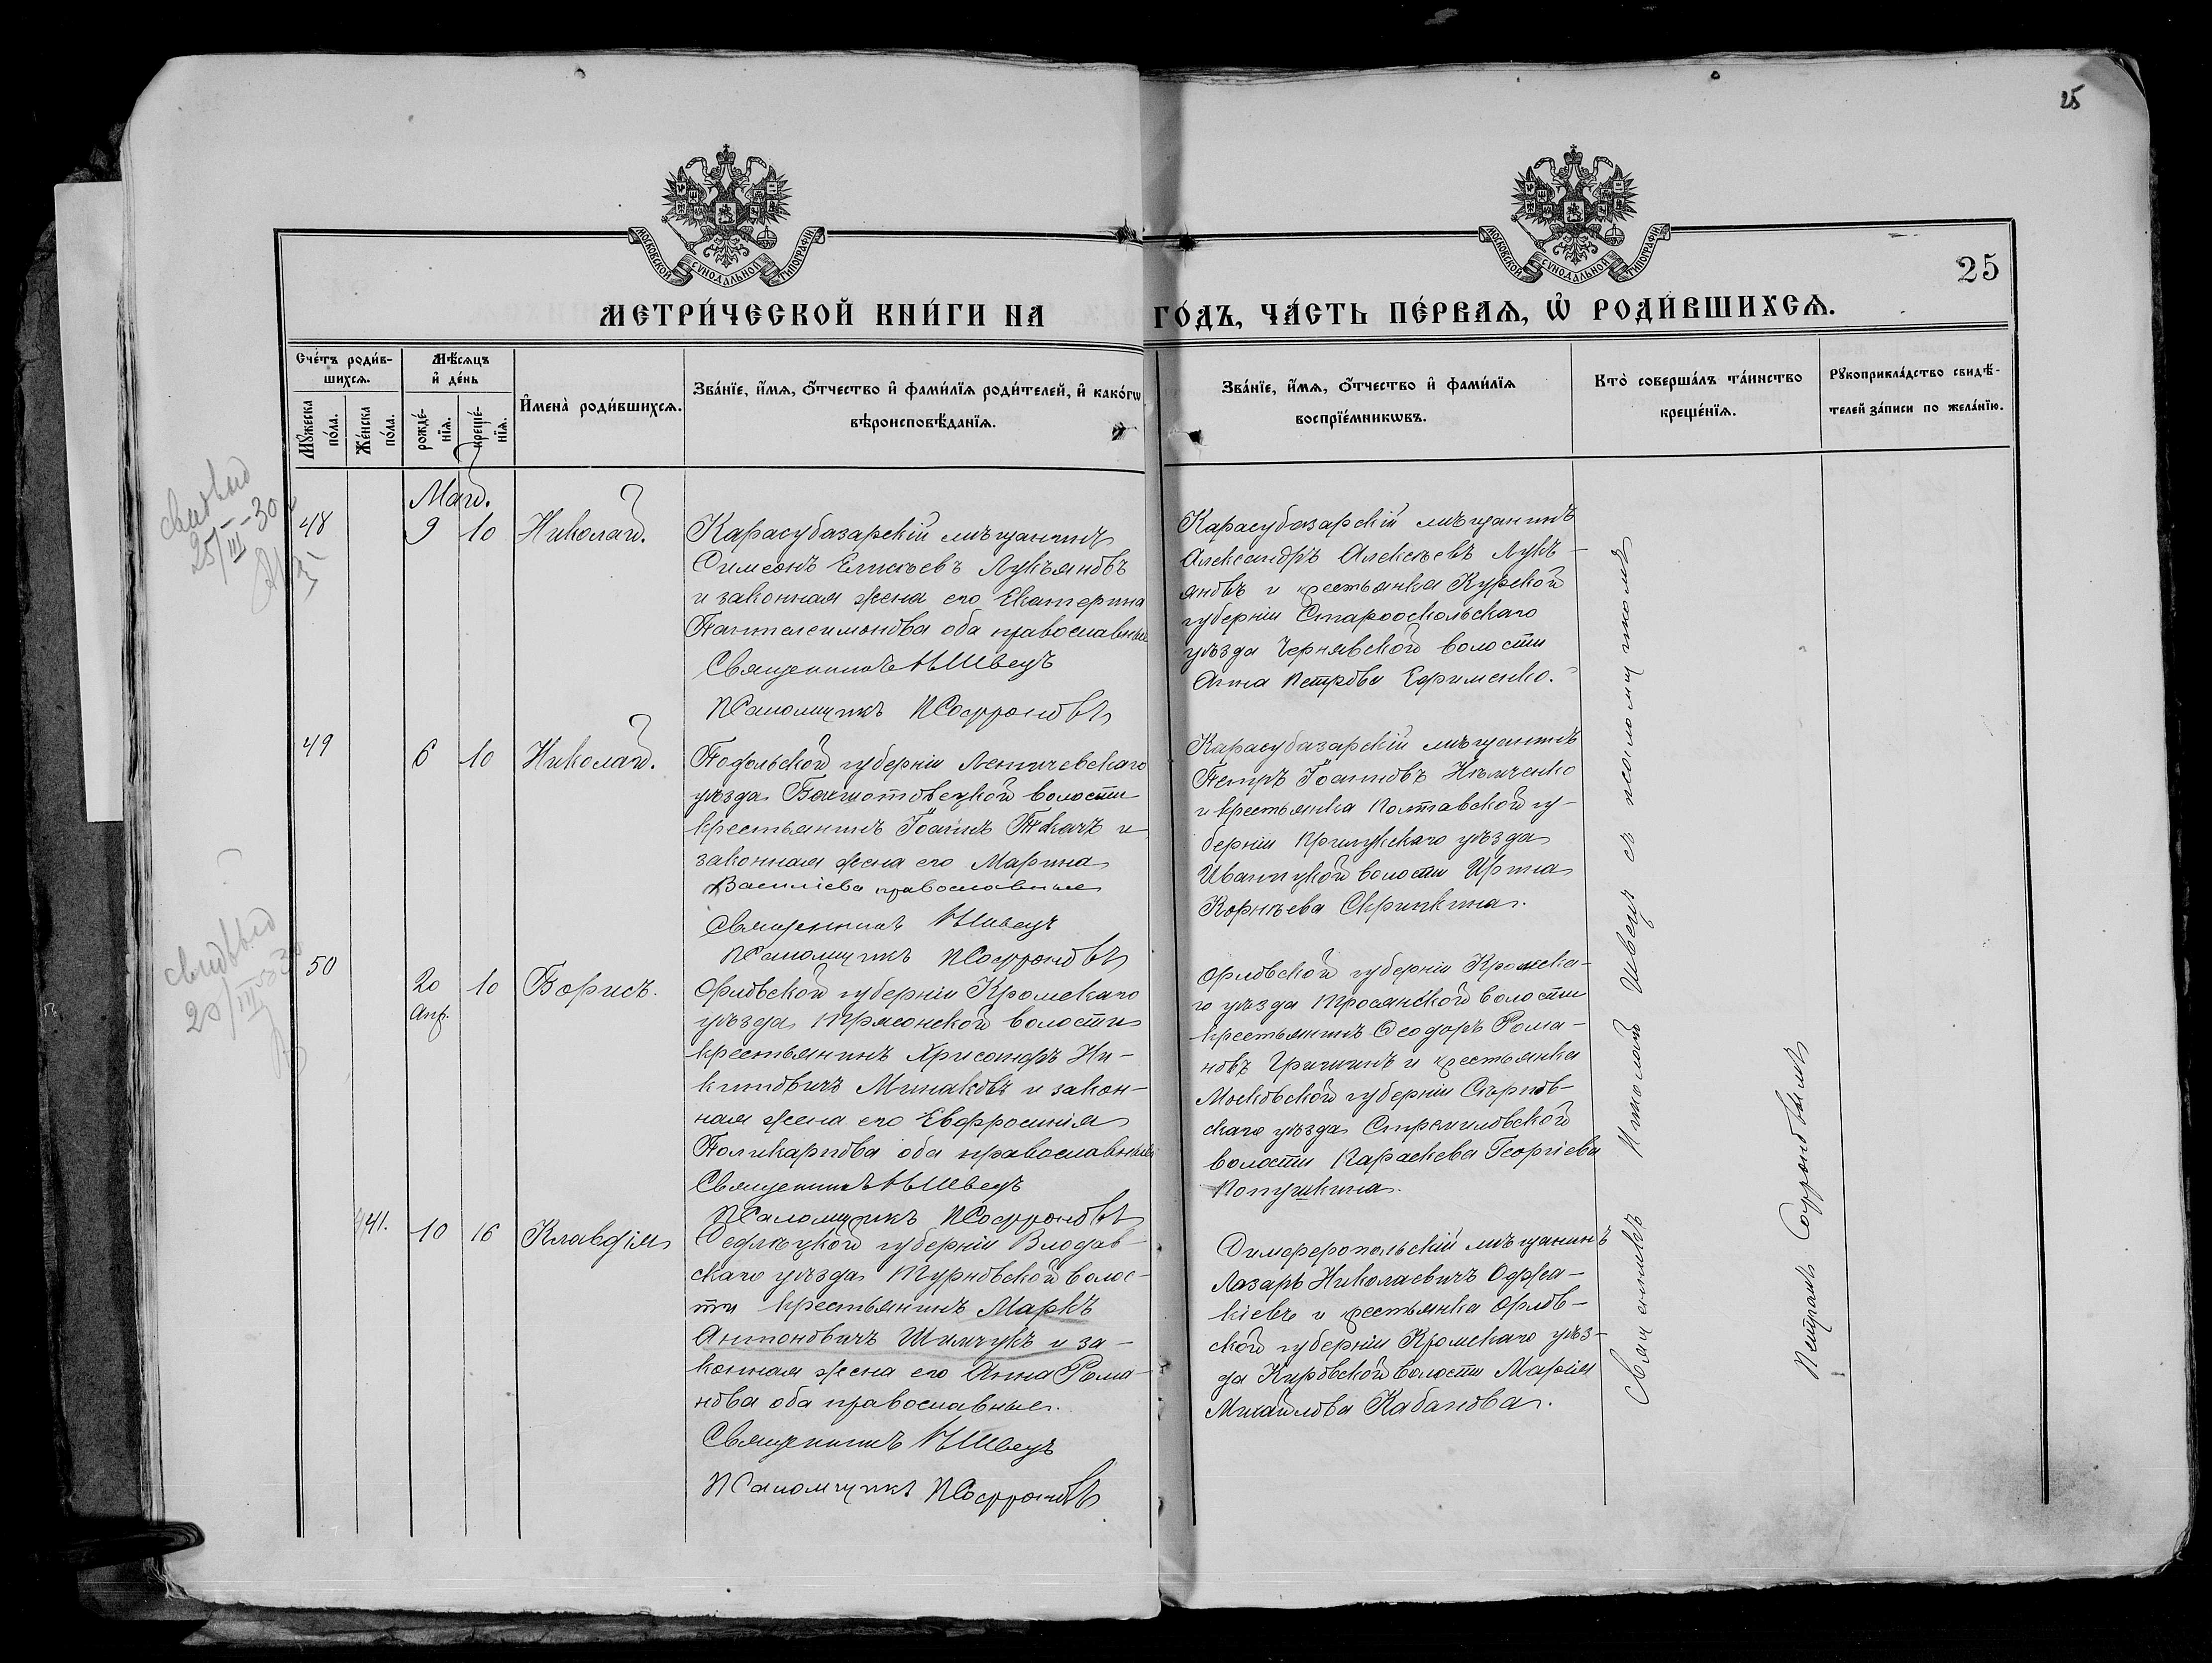 25
МОСКОВСКОЙ СѴНОДАЛЬНОЙ ТИПОГРАФІИ
МОСКОВСКОЙ СѴНОДАЛЬНОЙ ТИПОГРАФІИ
25
МЕТРИ́ЧЕСКОЙ КНИ́ГИ НА ГО́ДЪ, ЧА́СТЬ ПЕ́РВАѦ, Ѡ РОДИ́ВШИХСѦ.
Сче́тъ роди́в-
шихсѧ.
Мꙋ́жеска по́ла.
Же́нска по́ла.
Мѣ́сѧцъ
и҆ де́нь
рожде́-
нїѧ.
креще́-
нїѧ.
И҆мена̀ роди́вшихсѧ.
Зва́нїе, и҆́мѧ, ѻ҆́тчество и҆ фами́лїѧ роди́телей, и҆ како́гѡ
вѣроисповѣ́данїѧ.
Зва́нїе, и҆́мѧ, ѻ҆́тчество и҆ фами́лїѧ
воспрїе́мникѡвъ.
Кто̀ соверша́лъ та́инство
креще́нїѧ.
Рꙋкоприкла́дство свидѣ́-
телей за́писи по жела́нїю.
Май.
48
9
10
Николай.
Карасубазарскій мѣщанинъ
Симеонъ Елисѣевъ Лукъяновъ
и законная жена его Екатерина
Пантелеимонова оба православные
Священникъ Н Швецъ
Псаломщикъ П Софроновъ
Карасубазарскій мѣщанинъ
Александръ Алексѣевъ Лукъ-
яновъ и крестьянка Курской
губерніи Старооскольскаго
уѣзда Чернявской волости
Анна Петрова Ефименко.
49
6
10
Николай.
Подольской губерніи Летичевскаго
уѣзда волости
крестьянинъ Іоаннъ Ткачъ и
законная жена его Марина
Василіева православные
Священникъ Н Швецъ
Псаломщикъ П Софроновъ
Карасубазарскій мѣщанинъ
Петръ Іоанновъ Нѣмченко
и крестьянка Полтавской гу-
берніи Прилукскаго уѣзда
Иваницкой волости Ирина
Корнѣева Скрипкина.
50
20
Апр.
10
Борисъ.
Орловской губерніи Кромскаго
уѣзда волости
крестьянинъ Хрисанфъ Ни-
китовичъ Минаковъ и закон-
ная жена его Евфросинія
Поликарпова оба православные
Священникъ Н Швецъ
Псаломщикъ П Софроновъ
Орловской губерніи Кромска-
го уѣзда волости
крестьянинъ Ѳеодоръ Рома-
новъ Гришинъ и крестьянка
Московской губерніи Серпов-
скаго уѣзда Стремиловской
волости Параскева Георгіева
41.
10
16
Клавдія
Седлецкой губерніи Влодав-
скаго уѣзда Турновской волос-
ти крестьянинъ Маркъ
Антоновичъ Шимчукъ и за-
конная жена его Анна Рома-
нова оба православные.
Священникъ Н Швецъ
Псаломщикъ П Софроновъ
Симферопольскій мѣщанинъ
Лазарь Николаевичъ Оджа-
кіевъ и крестьянка Орлов-
ской губерніи Кромскаго уѣз-
да волости Марія
Михайлова Кабанова.
Священникъ Николай Швецъ съ псаломщикомъ
Петромъ Софроновымъ